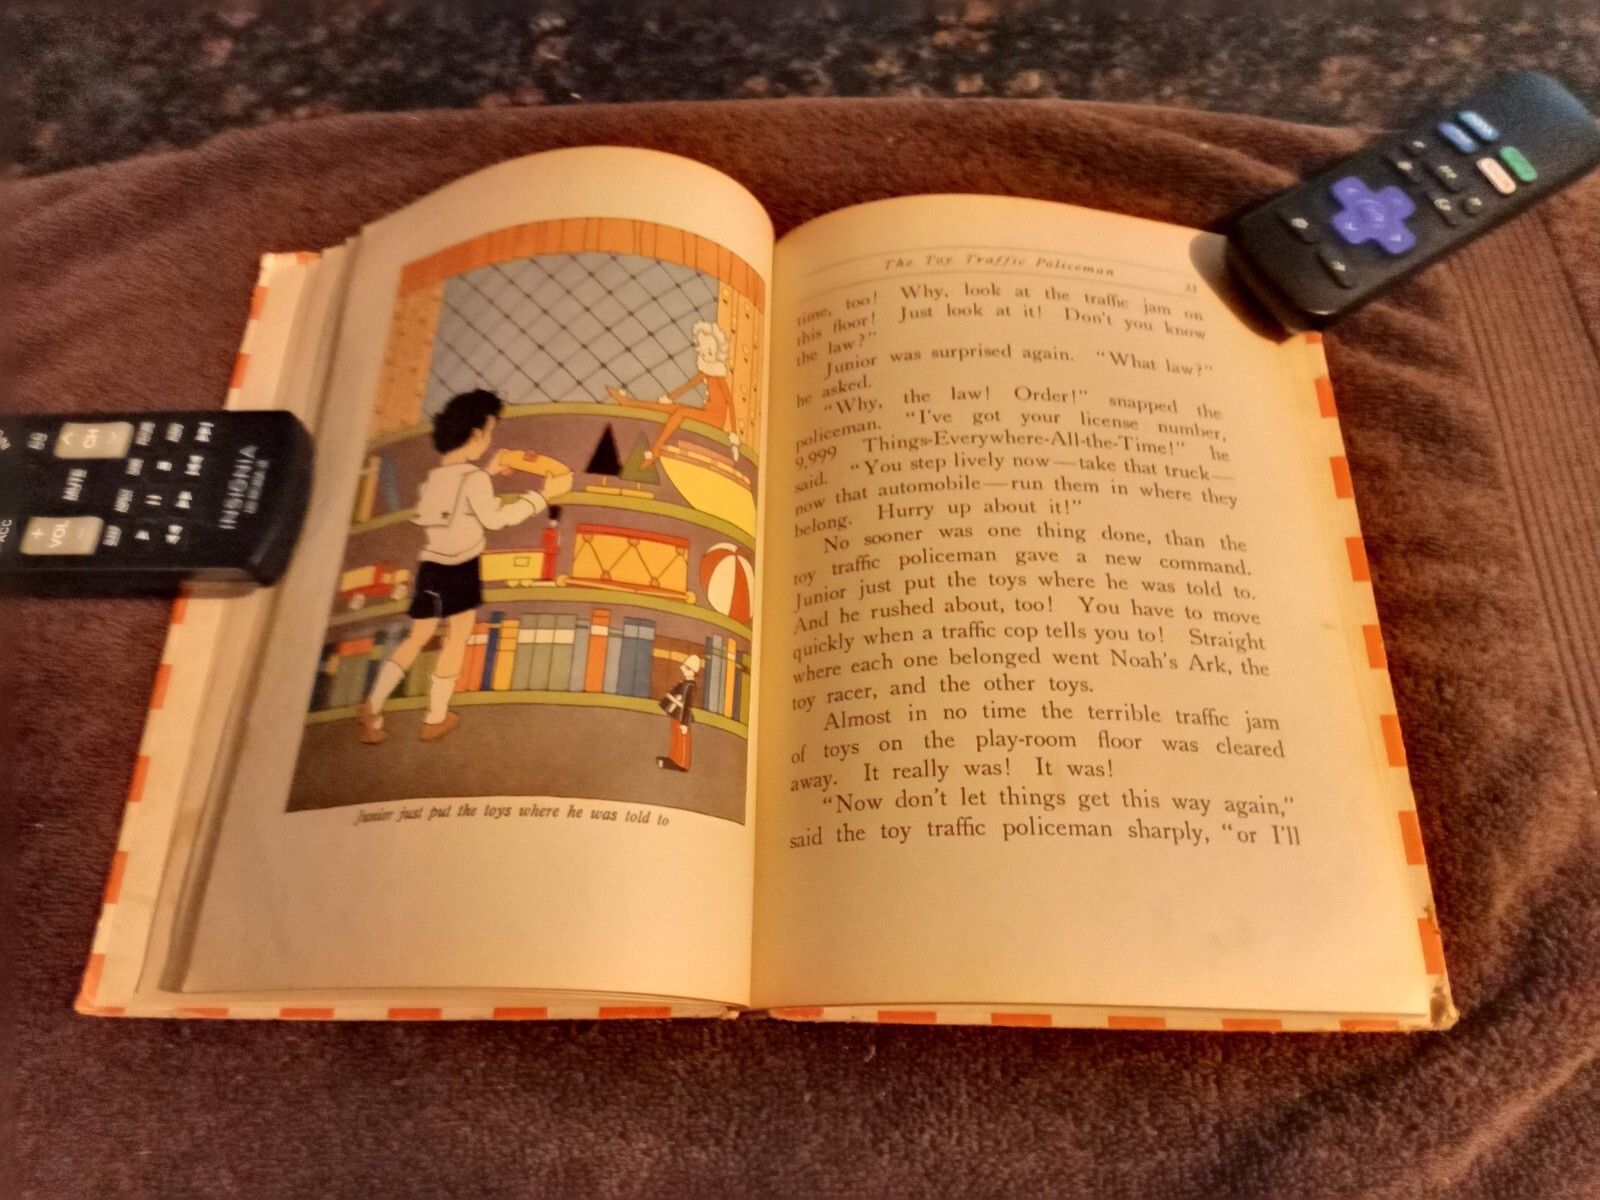 Junior just put the toys where he was told to
The Toy Traffic Policeman
33
time, too! Why, look at the traffic jam on
this floor! Just look at it! Don't you know
the law?"
Junior was surprised again. "What law?"
he asked.
"Why, the law! Order!" snapped the
policeman. "I've got your license number,
9,999 Things-Everywhere-All-the-Time!" he
said. "You step lively now—take that truck—
now that automobile—run them in where they
belong. Hurry up about it!"
No sooner was one thing done, than the
toy traffic policeman gave a new command.
Junior just put the toys where he was told to.
And he rushed about, too! You have to move
quickly when a traffic cop tells you to! Straight
where each one belonged went Noah's Ark, the
toy racer, and the other toys.
Almost in no time the terrible traffic jam
of toys on the play-room floor was cleared
away. It really was! It was!
"Now don't let things get this way again,"
said the toy traffic policeman sharply, "or I'll
INSIGNIA
CH
MUTE
+ VOL -
ACC